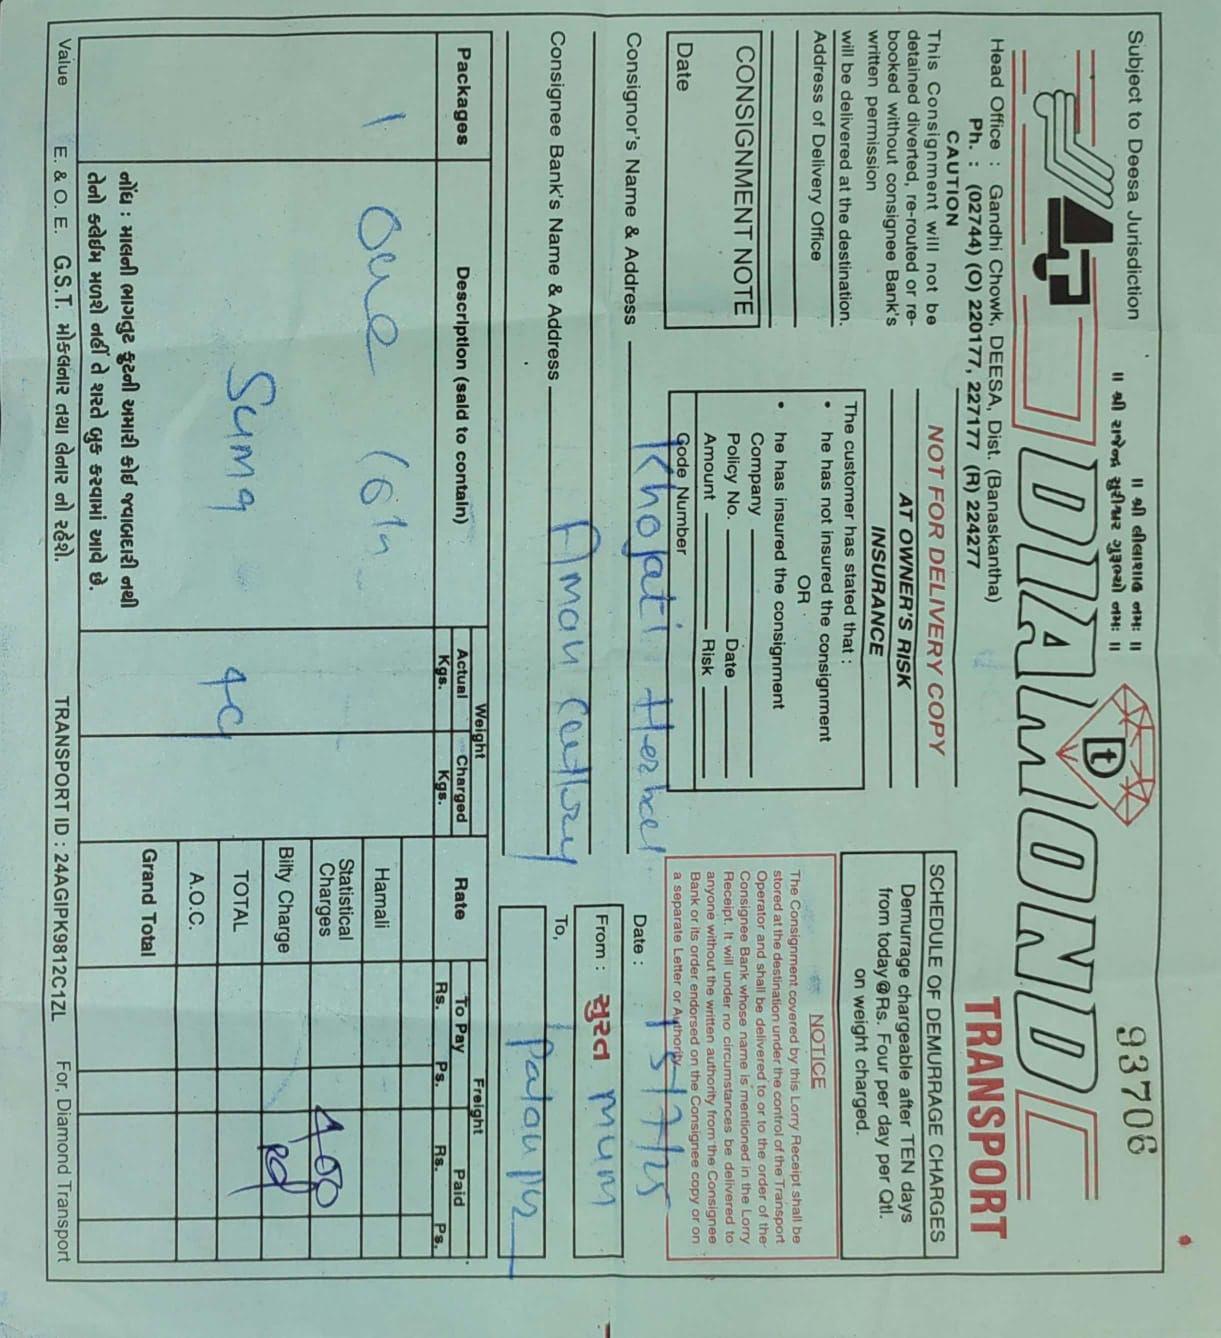 Subject to Deesa Jurisdiction
॥ શ્રી લીલાશાહ નમઃ ॥
॥ શ્રી રાજેન્દ્ર સુરીશ્વર ગુરૂભ્યો નમઃ ॥
93706
DIAMOND
t
TRANSPORT
Head Office : Gandhi Chowk, DEESA, Dist. (Banaskantha)
Ph. : (02744) (O) 220177, 227177 (R) 224277
CAUTION
This Consignment will not be
detained diverted, re-routed or re-
booked without consignee Bank's
written permission
will be delivered at the destination.
Address of Delivery Office
NOT FOR DELIVERY COPY
AT OWNER'S RISK
INSURANCE
The customer has stated that :
• he has not insured the consignment
OR
• he has insured the consignment
Company
Policy No. Date
Amount Risk
Code Number
SCHEDULE OF DEMURRAGE CHARGES
Demurrage chargeable after TEN days
from today@Rs. Four per day per Qtl.
on weight charged.
NOTICE
The Consignment covered by this Lorry Receipt shall be
stored at the destination under the control of the Transport
Operator and shall be delivered to or to the order of the
Consignee Bank whose name is mentioned in the Lorry
Receipt. It will under no circumstances be delivered to
anyone without the written authority from the Consignee
Bank or its order endorsed on the Consignee copy or on
a separate Letter or Authority.
CONSIGNMENT NOTE
Date
Consignor's Name & Address Khojati Herbal
Date : 15/7/25
From : સુરત mum
Consignee Bank's Name & Address Aman
To,
Palanpur
Packages Description (said to contain) Weight Rate Freight
Actual Kgs. Charged Kgs. To Pay Paid
Rs. Ps. Rs. Ps.
1 One
Hamali
Statistical Charges 400
Bilty Charge
TOTAL
A.O.C.
Grand Total
નોંધ : માલની ભાગતુટ ફુટની અમારી કોઈ જવાબદારી નથી
તેનો કલેઈમ મળશે નહીં તે શરતે બુક કરવામાં આવે છે.
Value E. & O. E. G.S.T. મોકલનાર તથા લેનાર નો રહેશે. TRANSPORT ID : 24AGIPK9812C1ZL For, Diamond Transport